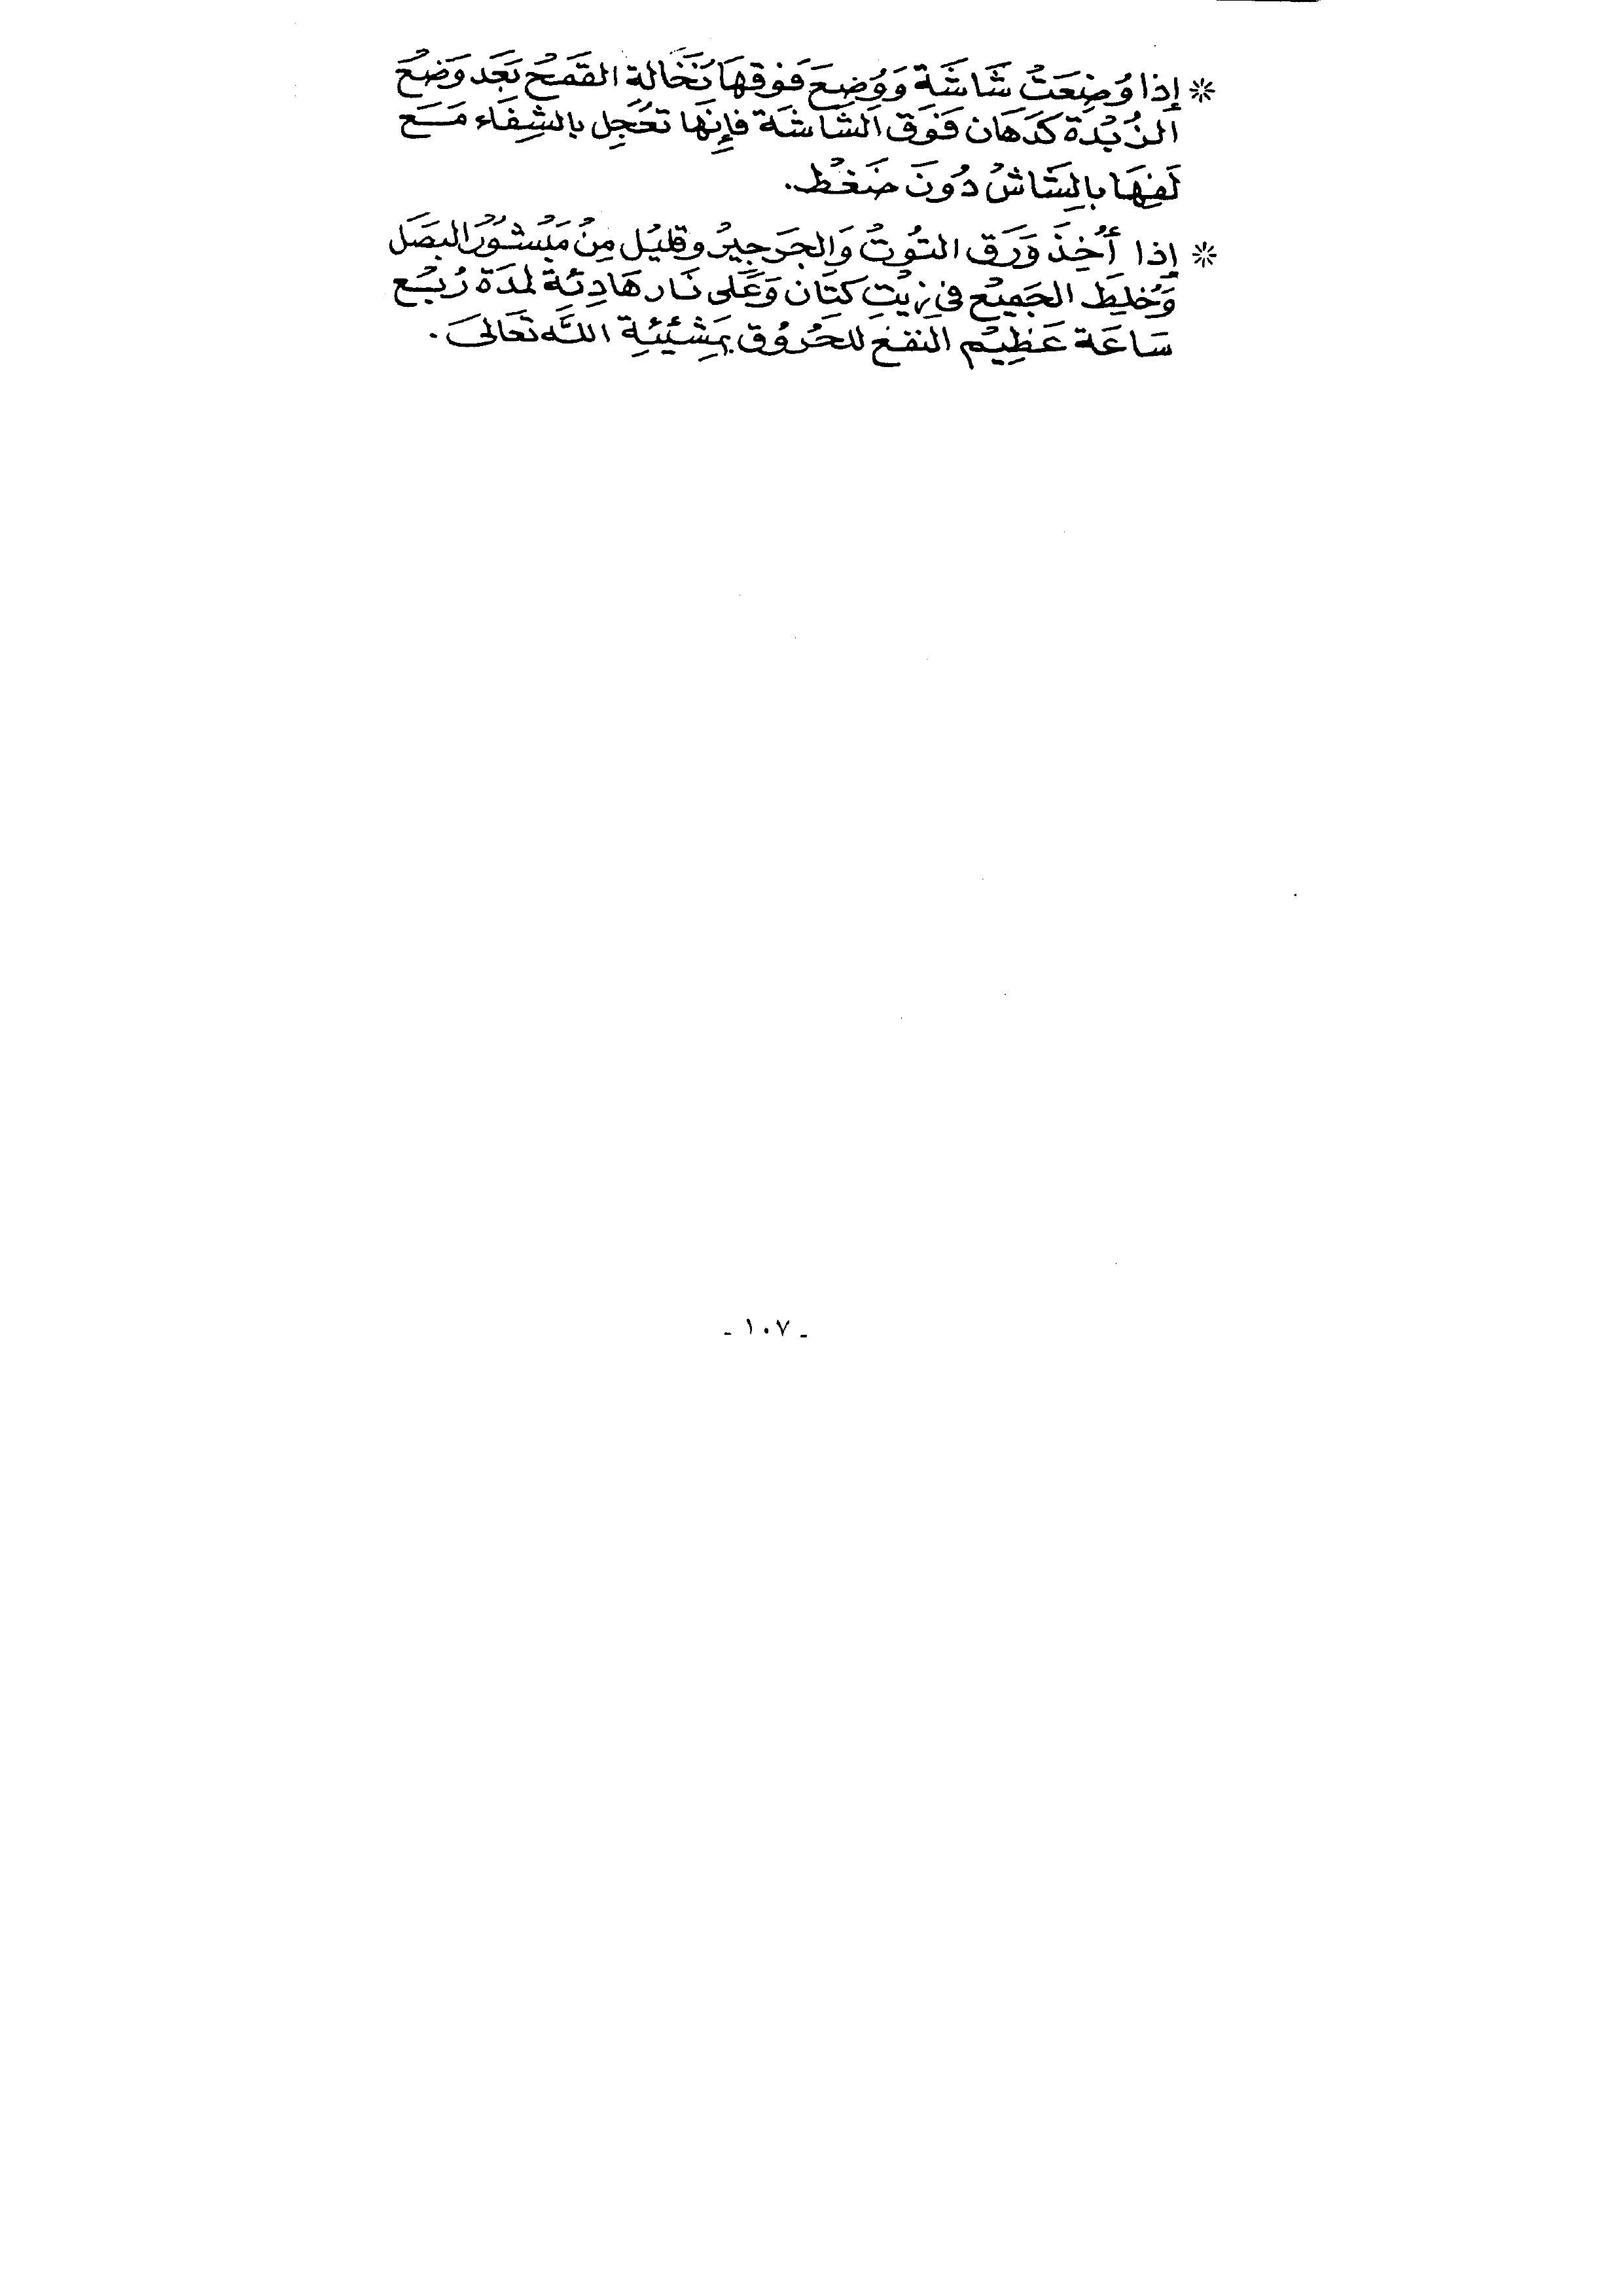 * إذا وُضِعَتْ شَاشَة وَوُضِعَ فَوقهَا نُخَالة القَمَحْ بَعَد وَضْعْ
الزُبْدَة كَدَهَان فَوَق الشَاشَة فإِنهَا تعُجِل بالشِفَاء مَـعَ
لَفِهَا بالشَاشْ دُونَ ضَغْط.
* إذا أُخِذَ وَرَق التوُتْ وَالجَرجِيرْ وقليْل مِنْ مَبْشوُرْ البصَل
وَخُلِطَ الجَميْع في زيْتِ كتَان وَعَلى نَـار هَادِئَة لمدَة رُبْـع
سَاعَة عَظِيْم النفعْ للحُرُوُق بمَشِئيْئةِ اللَّه تعَالىَ.
- ١٠٧ -